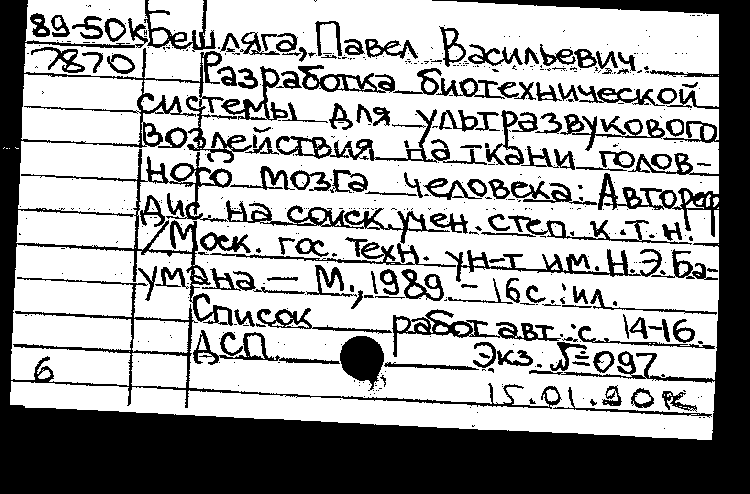 89-50к Бешляга, Павел Васильевич.
7870 Разработка биотехнической
системы для ультразвукового
воздействия на ткани голов-
ного мозга человека: Автореф
дис. на соиск. учен. степ. к.т.н.
/Моск. гос. техн. ун-т им. Н.Э.Ба-
умана. — М., 1989. - 16с.: ил.
Список работ авт.: с. 14-16.
ДСП. Экз. №=097.
6
15.01.90